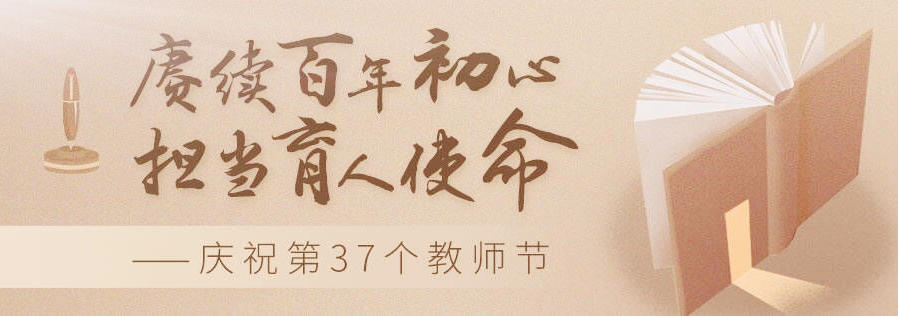 赓续百年初心
担当育人使命
——庆祝第37个教师节